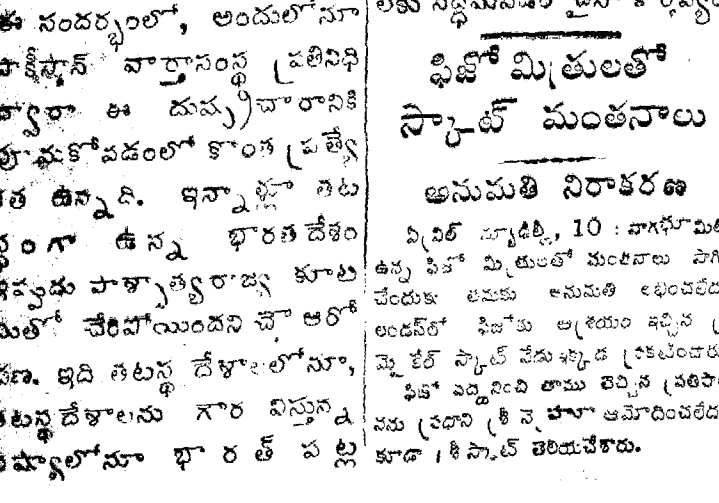 ఈ సందర్భంలో, అందులోనూ
పాకిస్తాన్ వార్తాసంస్థ ప్రతినిధి
ద్వారా ఈ దుష్ప్రచారానికి
పూనుకోవడంలో కొంత ప్రత్యే
కత ఉన్నది. ఇన్నాళ్లూ తట
స్థంగా ఉన్న భారతదేశం
ఇప్పుడు పాశ్చాత్యరాజ్య కూట
మితో చేరిపోయిందని చైనా ఆరో
పణ. ఇది తటస్థ దేశాలలోనూ,
తటస్థదేశాలను గౌరవిస్తున్న
దేశాలలోనూ భారత్ పట్ల
ఫిజో మిత్రులతో
స్కాట్ మంతనాలు
అనుమతి నిరాకరణ
న్యూఢిల్లీ, ఏప్రిల్ 10 : నాగభూమిలో
ఉన్న ఫిజో మిత్రులతో మంతనాలు సాగిం
చేందుకు తమకు అనుమతి లభించలేదని
లండన్‌లో ఫిజోకు ఆశ్రయం ఇచ్చిన
మైకేల్ స్కాట్ నేడు ఇక్కడ ప్రకటించారు.
ఫిజో వద్దనించి తాము తెచ్చిన ప్రతిపాద
నను ప్రధాని శ్రీ నెహ్రూ ఆమోదించలేదని
కూడా శ్రీ స్కాట్ తెలియచేశారు.